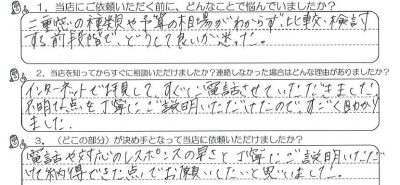 1. 当店にご依頼いただく前に、どんなことで悩んでいましたか？
二重窓の種類や予算の相場がわからず比較・検討
する前段階で、どうして良いか迷った。
2. 当店を知ってからすぐに相談いただけましたか？連絡しなかった場合はどんな理由がありましたか？
インターネットで拝見して、すぐに電話させていただきました！
不明な点を丁寧にご説明いただけたので、すごく助かり
ました。
3. （どこの部分）が決め手となって当店に依頼いただけましたか？
電話や対応のレスポンスの早さと、丁寧にご説明いただ
けて納得できた点でお願いしたいと思いました。